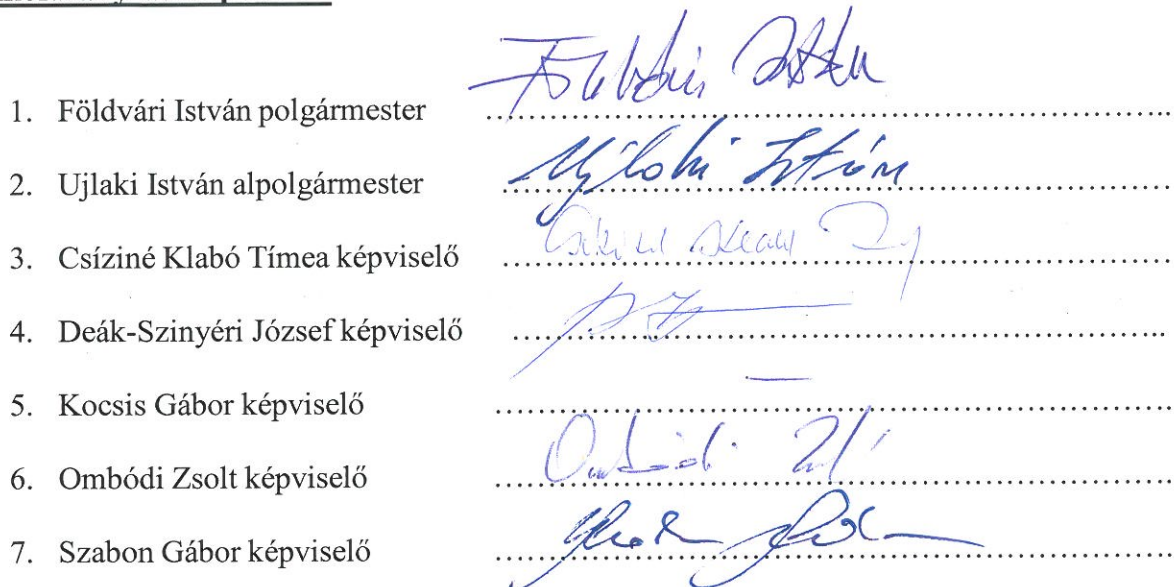 1. Földvári István polgármester .......... Földvári István
2. Ujlaki István alpolgármester .......... Ujlaki István
3. Csíziné Klabó Tímea képviselő ..........
4. Deák-Szinyéri József képviselő ..........
5. Kocsis Gábor képviselő .......... —
6. Ombódi Zsolt képviselő .......... Ombódi
7. Szabon Gábor képviselő ..........